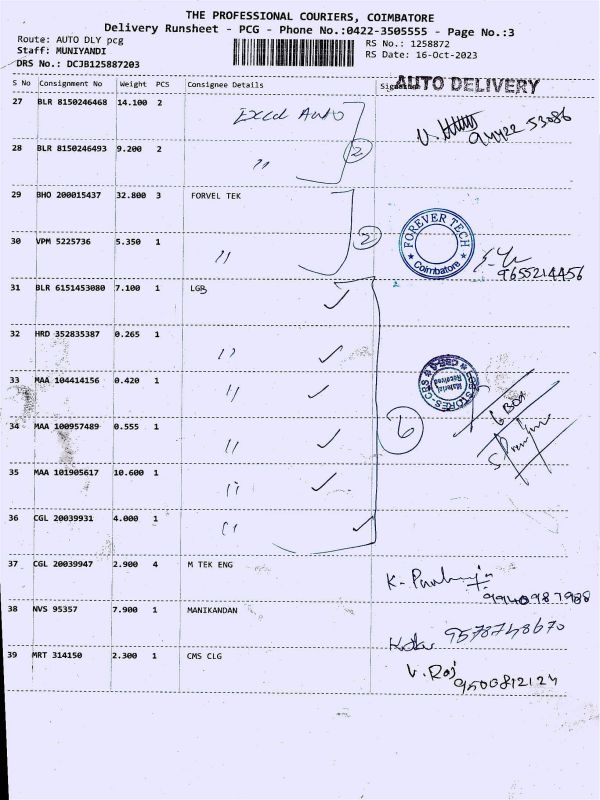 THE PROFESSIONAL COURIERS, COIMBATORE
Delivery Runsheet - PCG - Phone No.:0422-3505555 - Page No.:3
Route: AUTO DLY pcg
RS No.: 1258872
Staff: MUNIYANDI
RS Date: 16-Oct-2023
DRS No.: DCJB125887203
S No Consignment No Weight PCS Consignee Details Signature
AUTO DELIVERY
27 BLR 8150246468 14.100 2 Excel Auto
28 BLR 8150246493 9.200 2 " 2
29 BHO 200015437 32.800 3 FORVEL TEK
FOREVER TECH
Coimbatore
30 VPM 5225736 5.350 1 " 2
9655214456
31 BLR 6151453080 7.100 1 LGB
32 HRD 352835387 0.265 1 "
33 MAA 104414156 0.420 1 "
Material
Received
6 BOX
34 MAA 100957489 0.555 1 " 6
35 MAA 101905617 10.600 1 "
36 CGL 20039931 4.000 1 "
37 CGL 20039947 2.900 4 M TEK ENG
9940987988
38 NVS 95357 7.900 1 MANIKANDAN
9578748670
39 MRT 314150 2.300 1 CMS CLG
V. Raj
9500812124